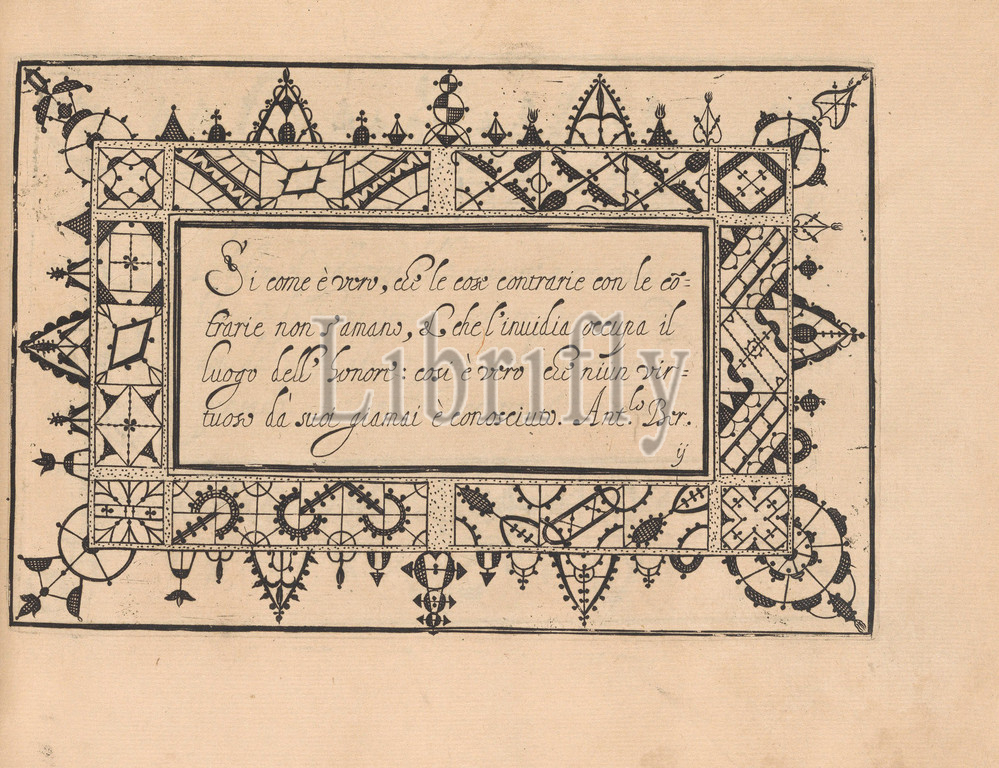 Si come è vero, che le cose contrarie con le cõ=
trarie non s'amano, & che l'inuidia occupa il
luogo dell' honore: cosi è vero che niun vir=
tuoso da' suoi giamai è conosciuto. Ant.lo Ber.
ij
Librifly